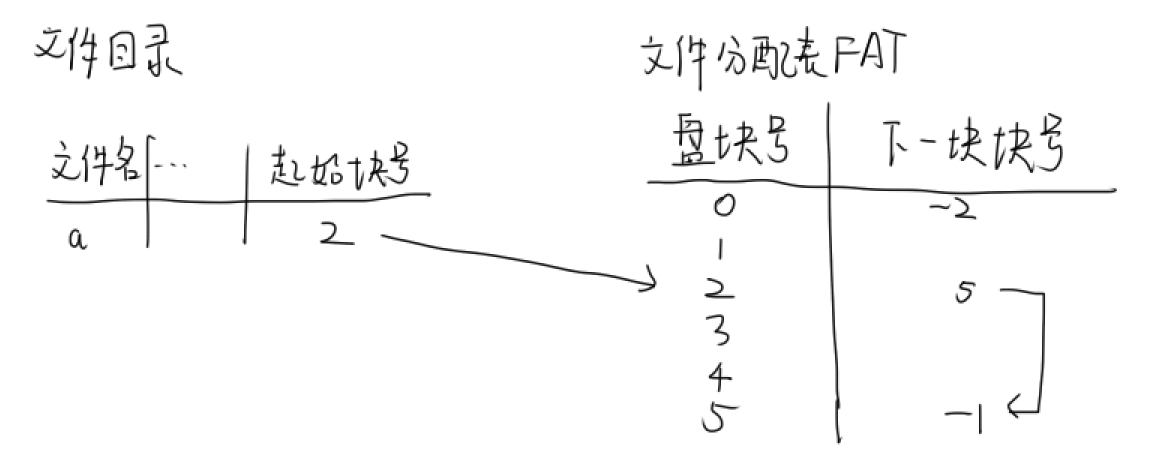 文件目录
文件名 … 起始块号
a 2
文件分配表FAT
盘块号 下一块块号
0 -2
1
2 5
3
4
5 -1